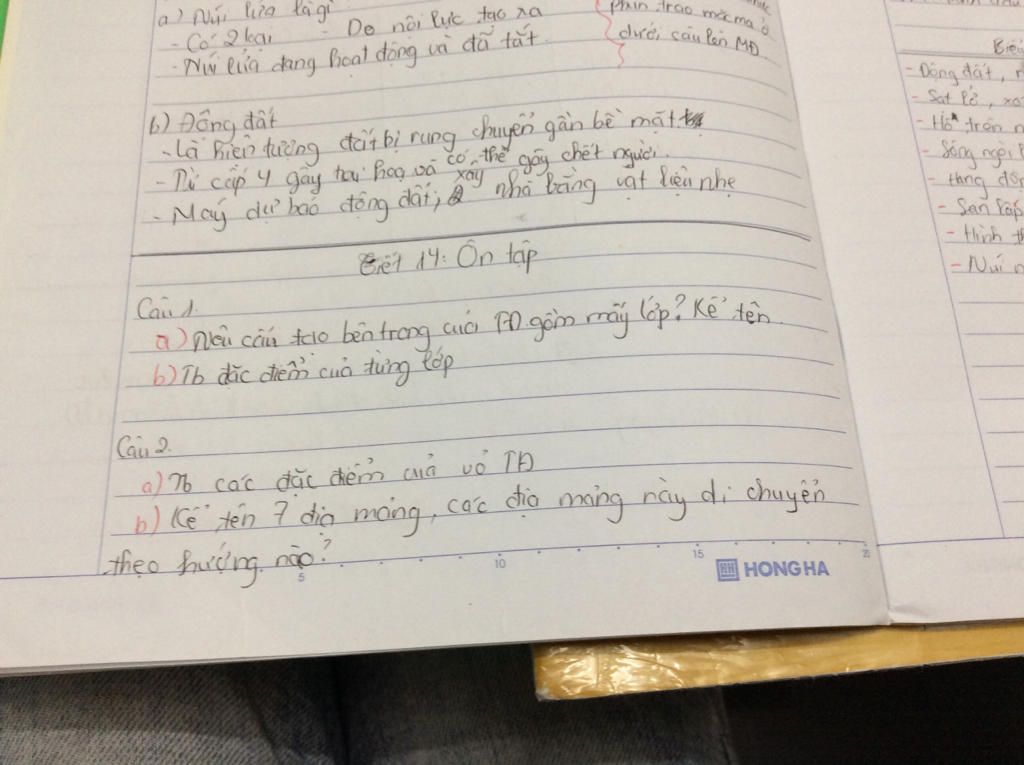 a) Núi lửa là gì
- Có 2 loại - Do nội lực tạo ra
phun trào mắc ma ở
dưới sâu lên MĐ
- Núi lửa đang hoạt động và đã tắt
b) Động đất
- Là hiện tượng đất bị rung chuyển gần bề mặt
- Từ cấp 4 gây tai hoạ và có thể gây chết người.
- Máy dự báo động đất; xây nhà bằng vật liệu nhẹ
Tiết 14: Ôn tập
Câu 1.
a) Nêu cấu tạo bên trong của TĐ gồm mấy lớp? Kể tên
b) Tb đặc điểm của từng lớp
Câu 2.
a) Tb các đặc điểm của vỏ TĐ
b) Kể tên 7 địa mảng, các địa mảng này di chuyển
theo hướng nào?
5 10 15 20
HH HONG HA
- Động đất,
- Sạt lở,
- Hồ trên
- Sông ngòi
- Hang
- San lấp
- Hình
- Núi